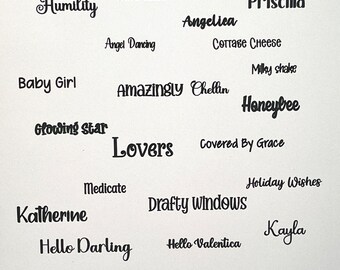 Humility
Priscilla
Angelica
Angel Dancing
Cottage Cheese
Milky shake
Baby Girl
Amazingly
Chellin
Honeybee
Glowing Star
Lovers
Covered By Grace
Medicate
Holiday Wishes
Drafty Windows
Katherine
Kayla
Hello Darling
Hello Valentica